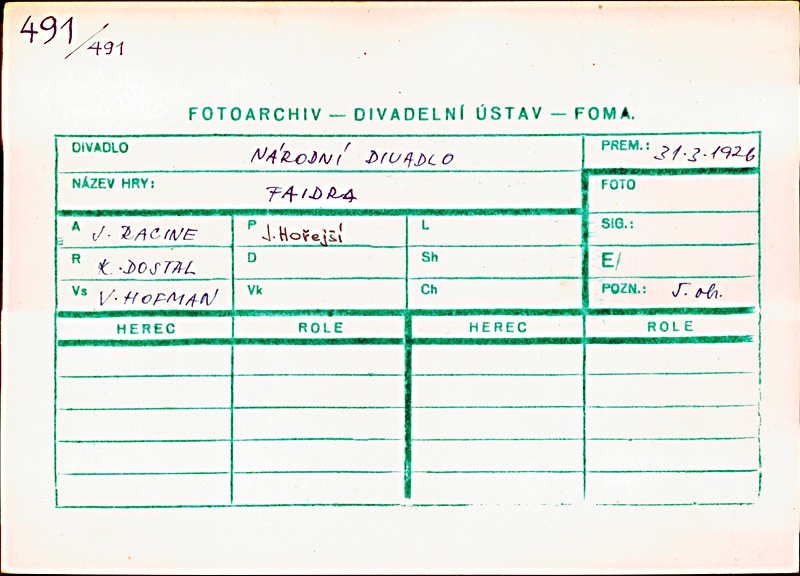 491/491
FOTOARCHIV — DIVADELNÍ ÚSTAV — FOMA.
DIVADLO NÁRODNÍ DIVADLO PREM.: 31.3.1926
NÁZEV HRY: FAIDRA FOTO
A J. RACINE P J. Hořejší L SIG.:
R K. DOSTAL D Sh E/
Vs V. HOFMAN Vk Ch POZN.: 5. ob.
HEREC ROLE HEREC ROLE